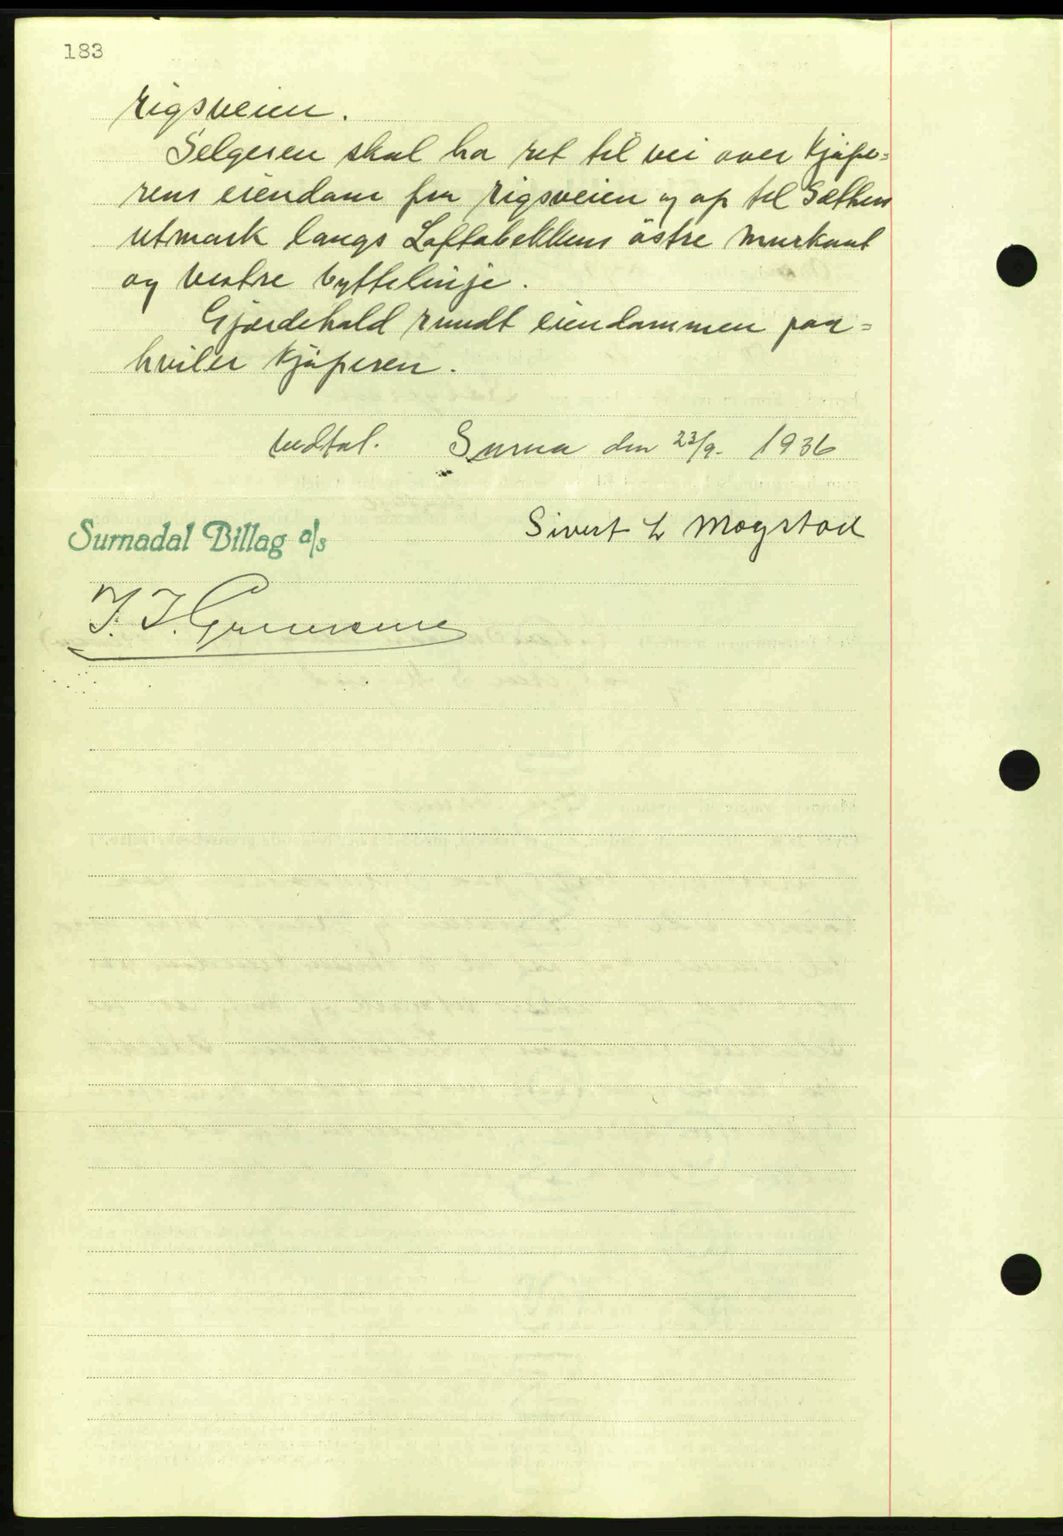 183
rigsveien.
Selgeren skal ha ret til vei over kjøpe=
rens eiendam fra rigsveien og op til Sæthers
utmark langs Loftabekkens östre murkant
og vestre byttelinje.
Gjærdehold rundt eiendommen paa=
hviler kjøperen.
Vedtat. Surna den 23/9. 1936
Surnadal Billag a/s
Sivert L Mogstad